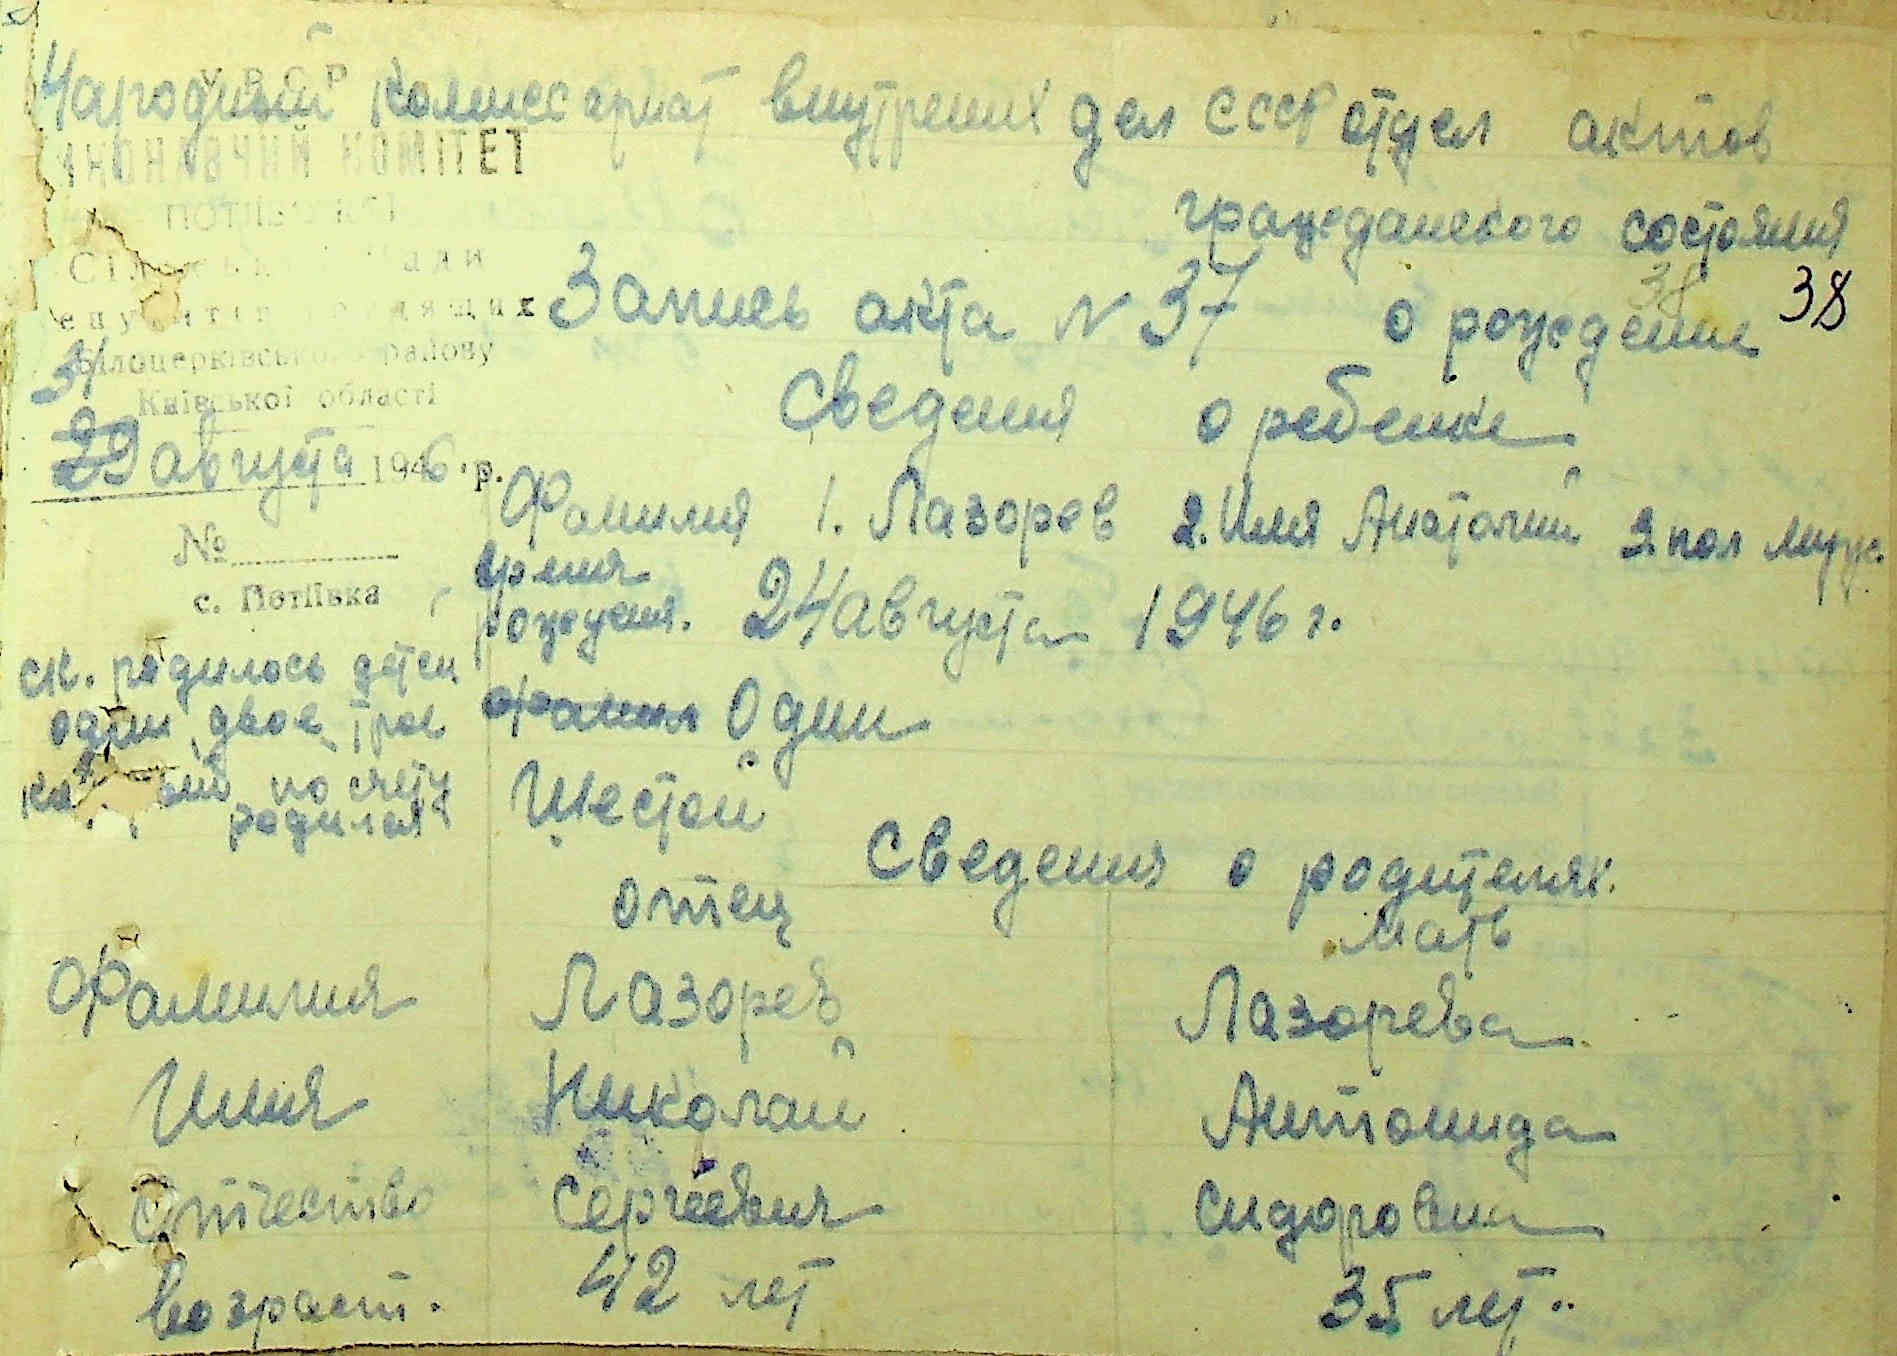 Народный комиссариат внутрених дел СССР отдел актов
гражданского состояния
УРСР
КОМІТЕТ
38
38
Запись акта N 37 о рождении
Білоцерківського району
Київської області
31
Сведения о ребенке
29 августа 1946 р.
Фамилия 1. Лазорев 2. Имя Анатолий 3. пол мужс.
время
рождения. 24 августа 1946 г.
№
с. Потіївка
ск. родилось детей
один, двое, трое
фамил Один
по счету
родился
Шестой
Сведения о родителях.
отец мать
Фамилия Лазорев Лазорева
Имя Николай Антонида
Отчество Сергеевич Сидоровна
возраст. 42 лет 35 лет..